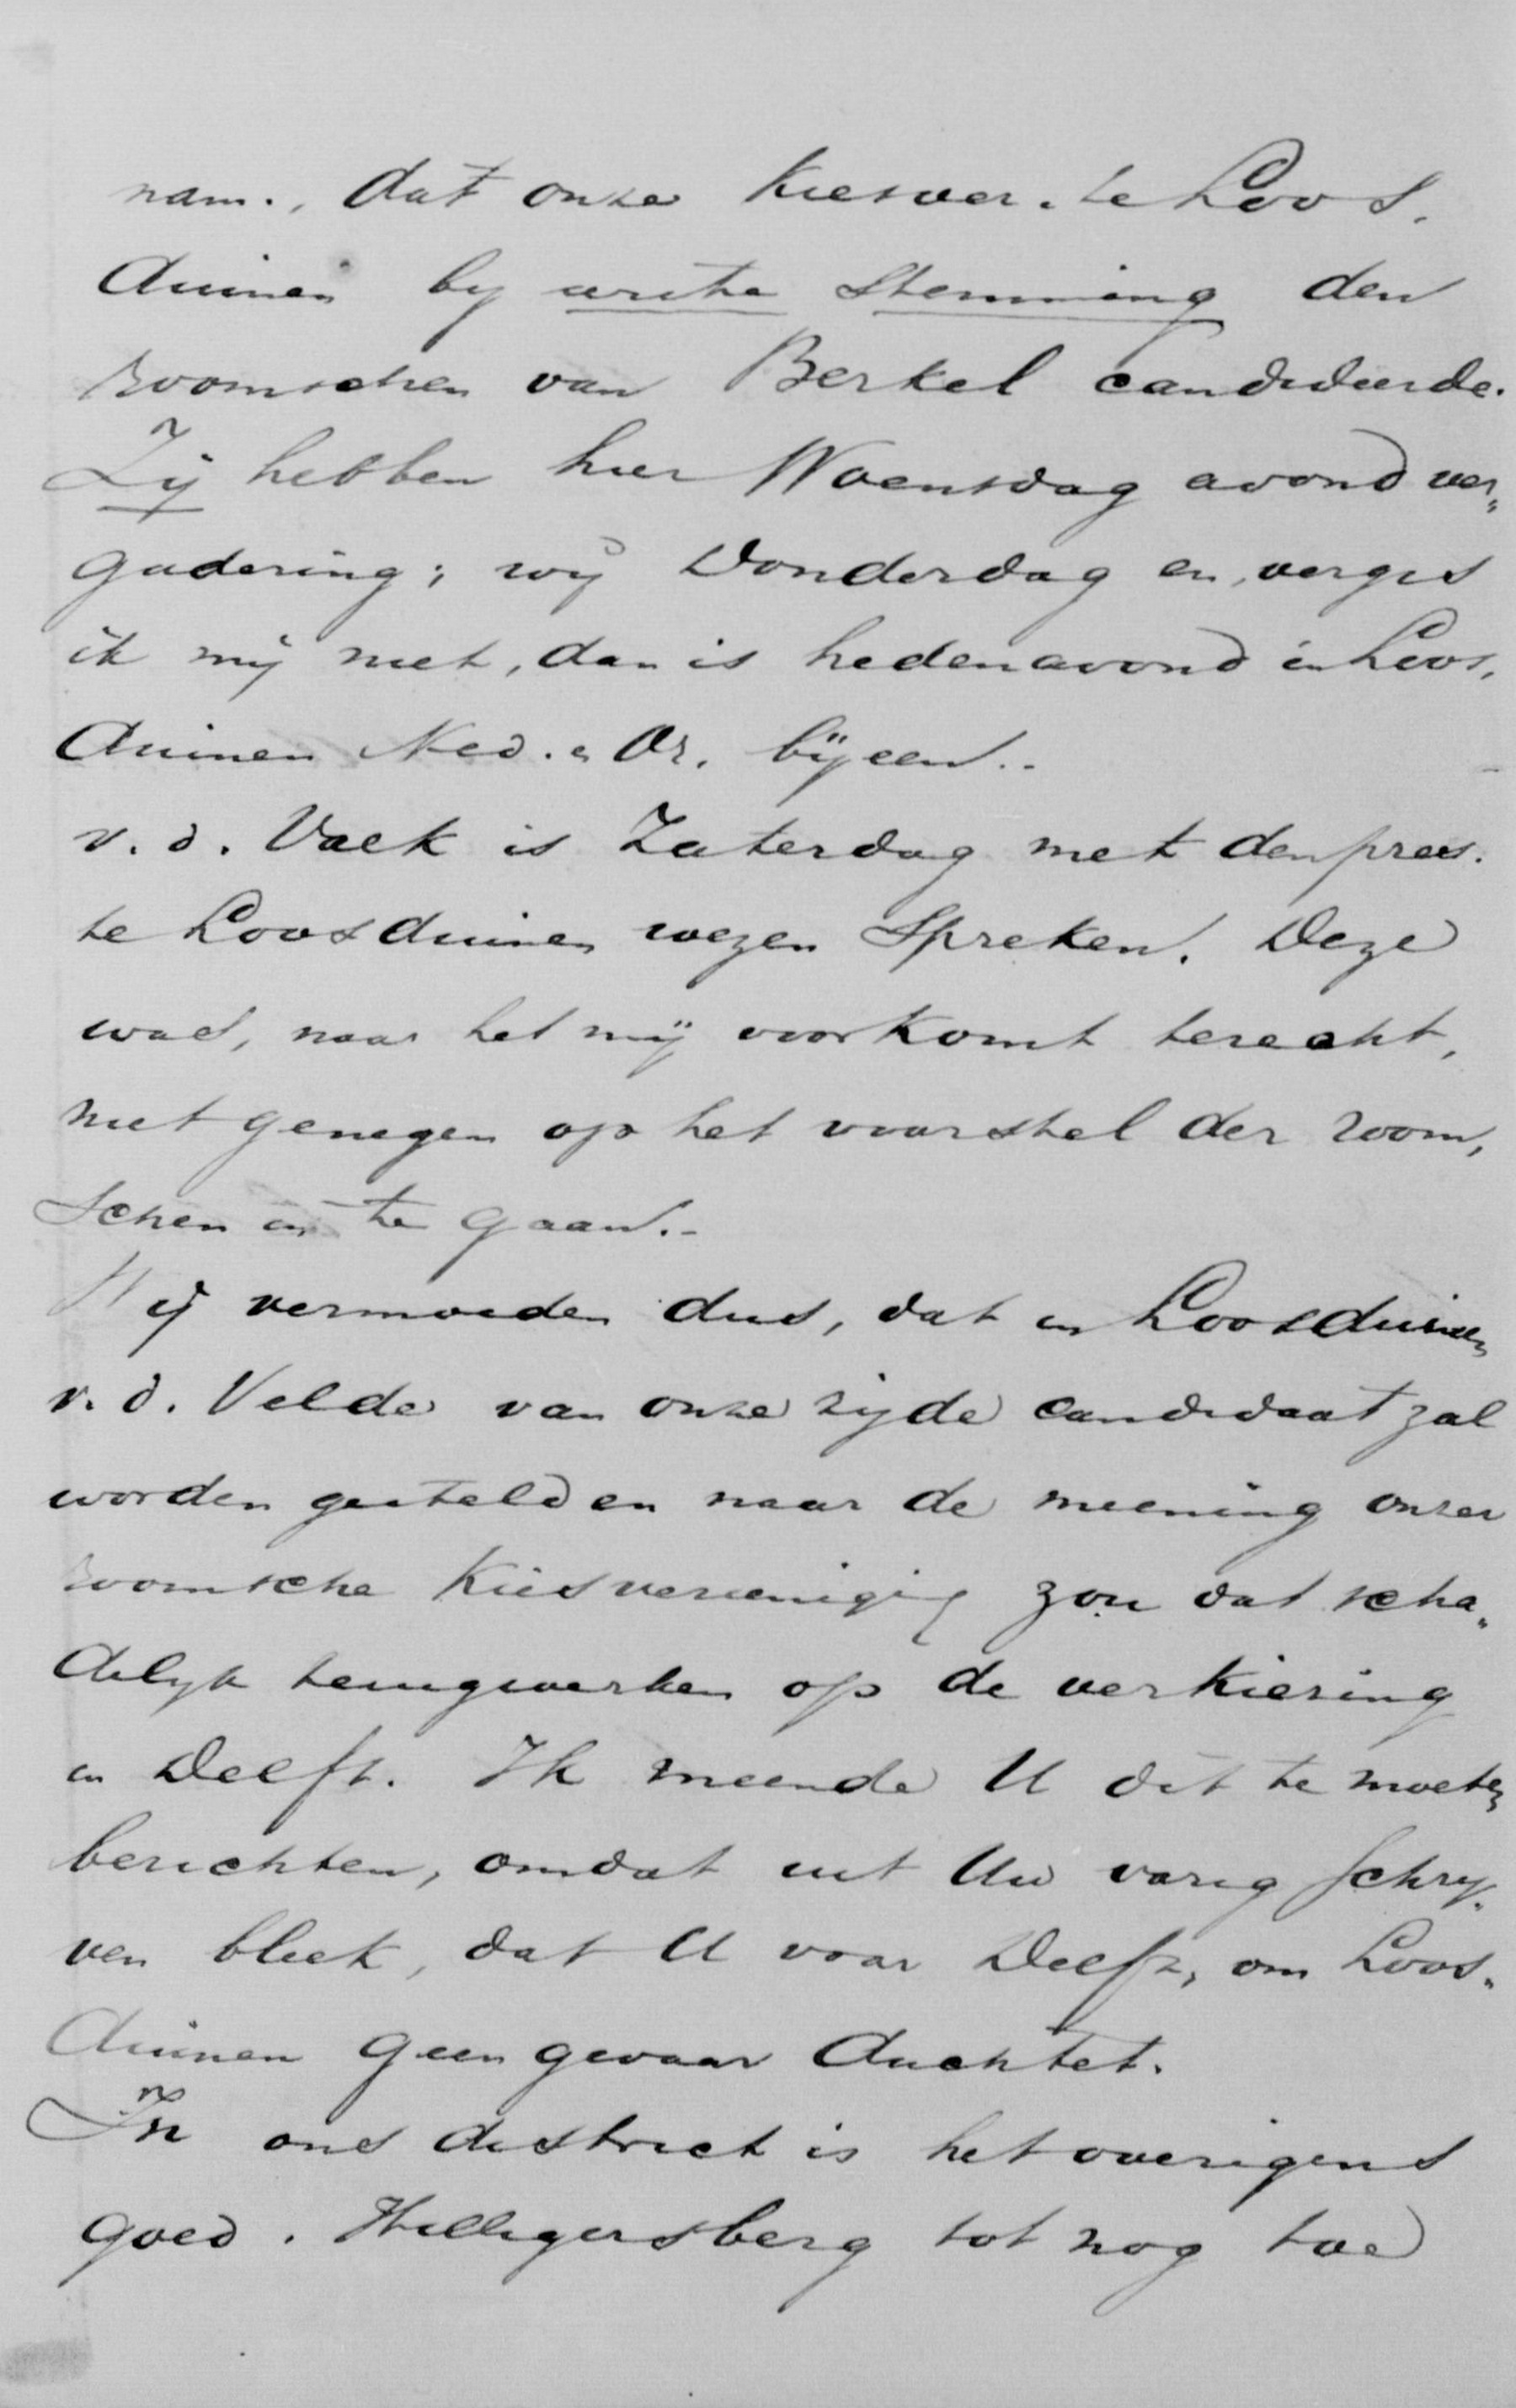 nam., dat onze kiesver. te Loos„
duinen by eerste stemming den
roomschen van Berkel candideerde.
Zij hebben hier Woensdag avond ver„
gadering; wij Donderdag en, vergis
ik mij niet, dan is hedenavond in Loos„
duinen Ned. & Or. bijeen.-
v. d. Valk is Zaterdag met den pres.
te Loosduinen wezen spreken. Deze
was, naar het mij voorkomt terecht,
niet genegen op het voorstel der room„
schen in te gaan.-
Wij vermoeden dus, dat in Loosduinen
v. d. Velde van onze zijde candidaat zal
worden gesteld en naar de meening onzer
roomsche kiesvereeniging zou dat scha„
delyk terugwerken op de verkiezing
in Delft. Ik meende U dit te moeten
berichten, omdat uit Uw vorig schry„
ven bleek, dat U voor Delft, om Loos„
duinen geen gevaar duchtet.
In ons district is het overigens
goed. Hilligersberg tot nog toe